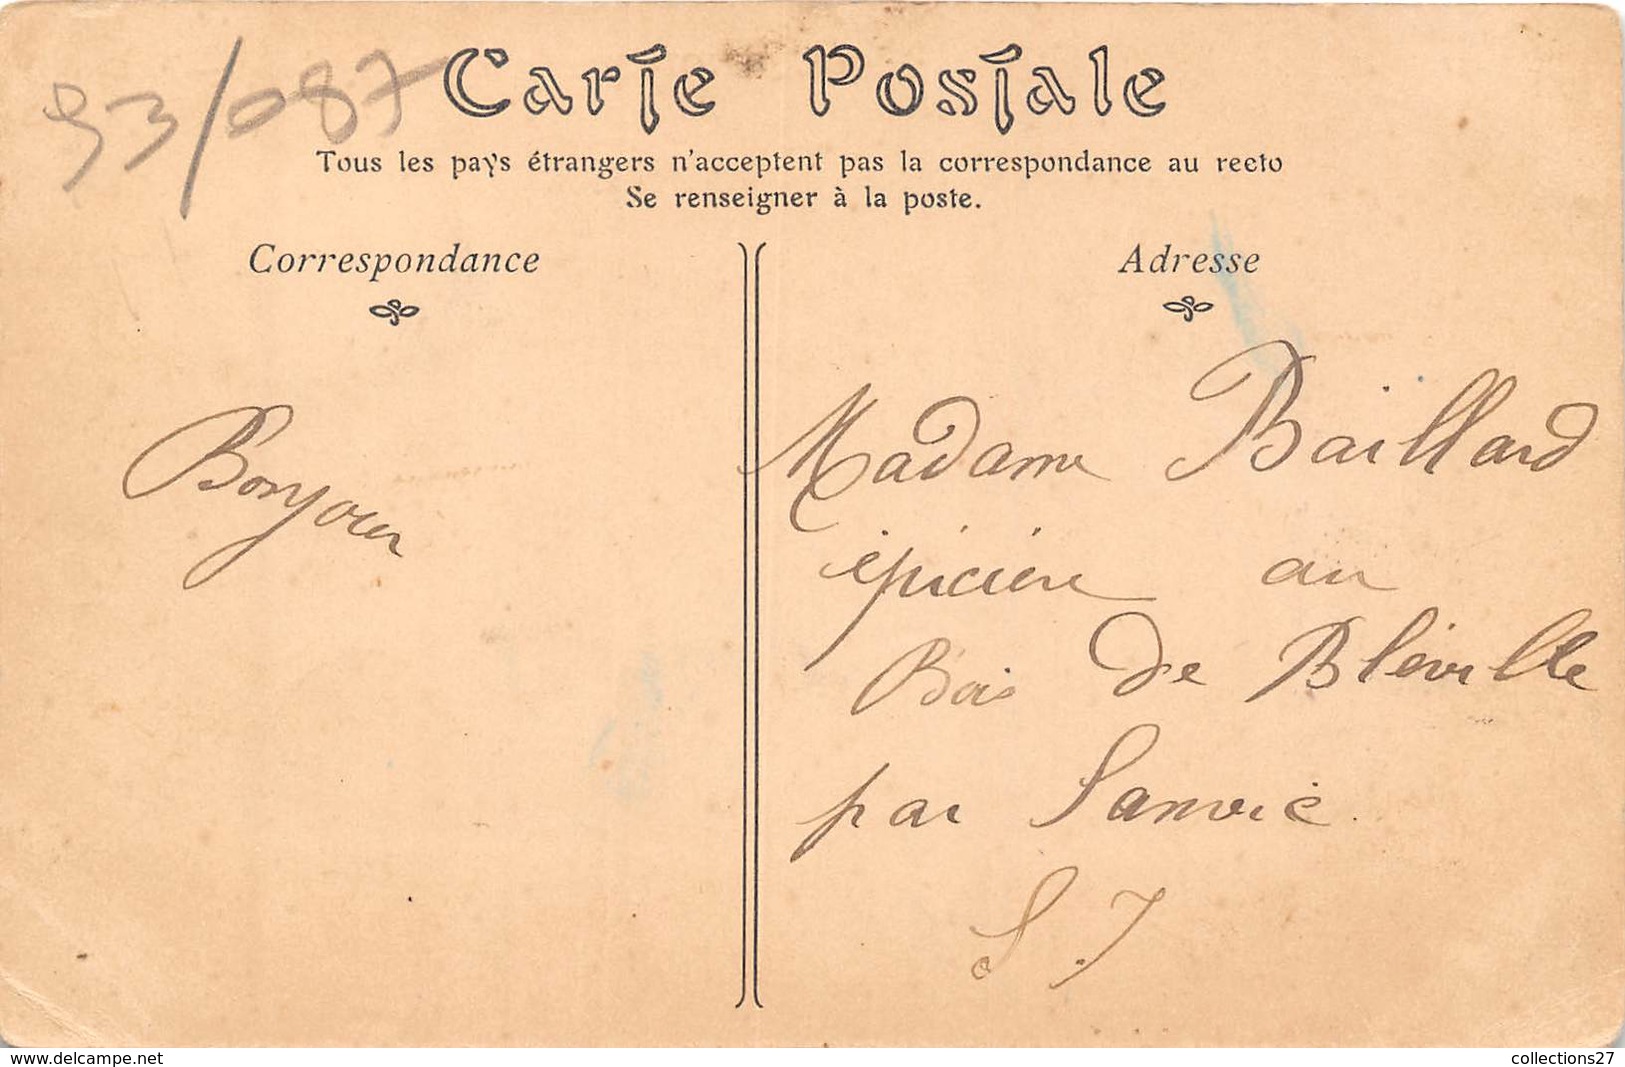 93/087
Carte Postale
Tous les pays étrangers n'acceptent pas la correspondance au recto
Se renseigner à la poste.
Correspondance
Adresse
Bonjour
Madame Baillard
épicière au
Bois de Bléville
par Sanvic.
S. I
www.delcampe.net
collections27